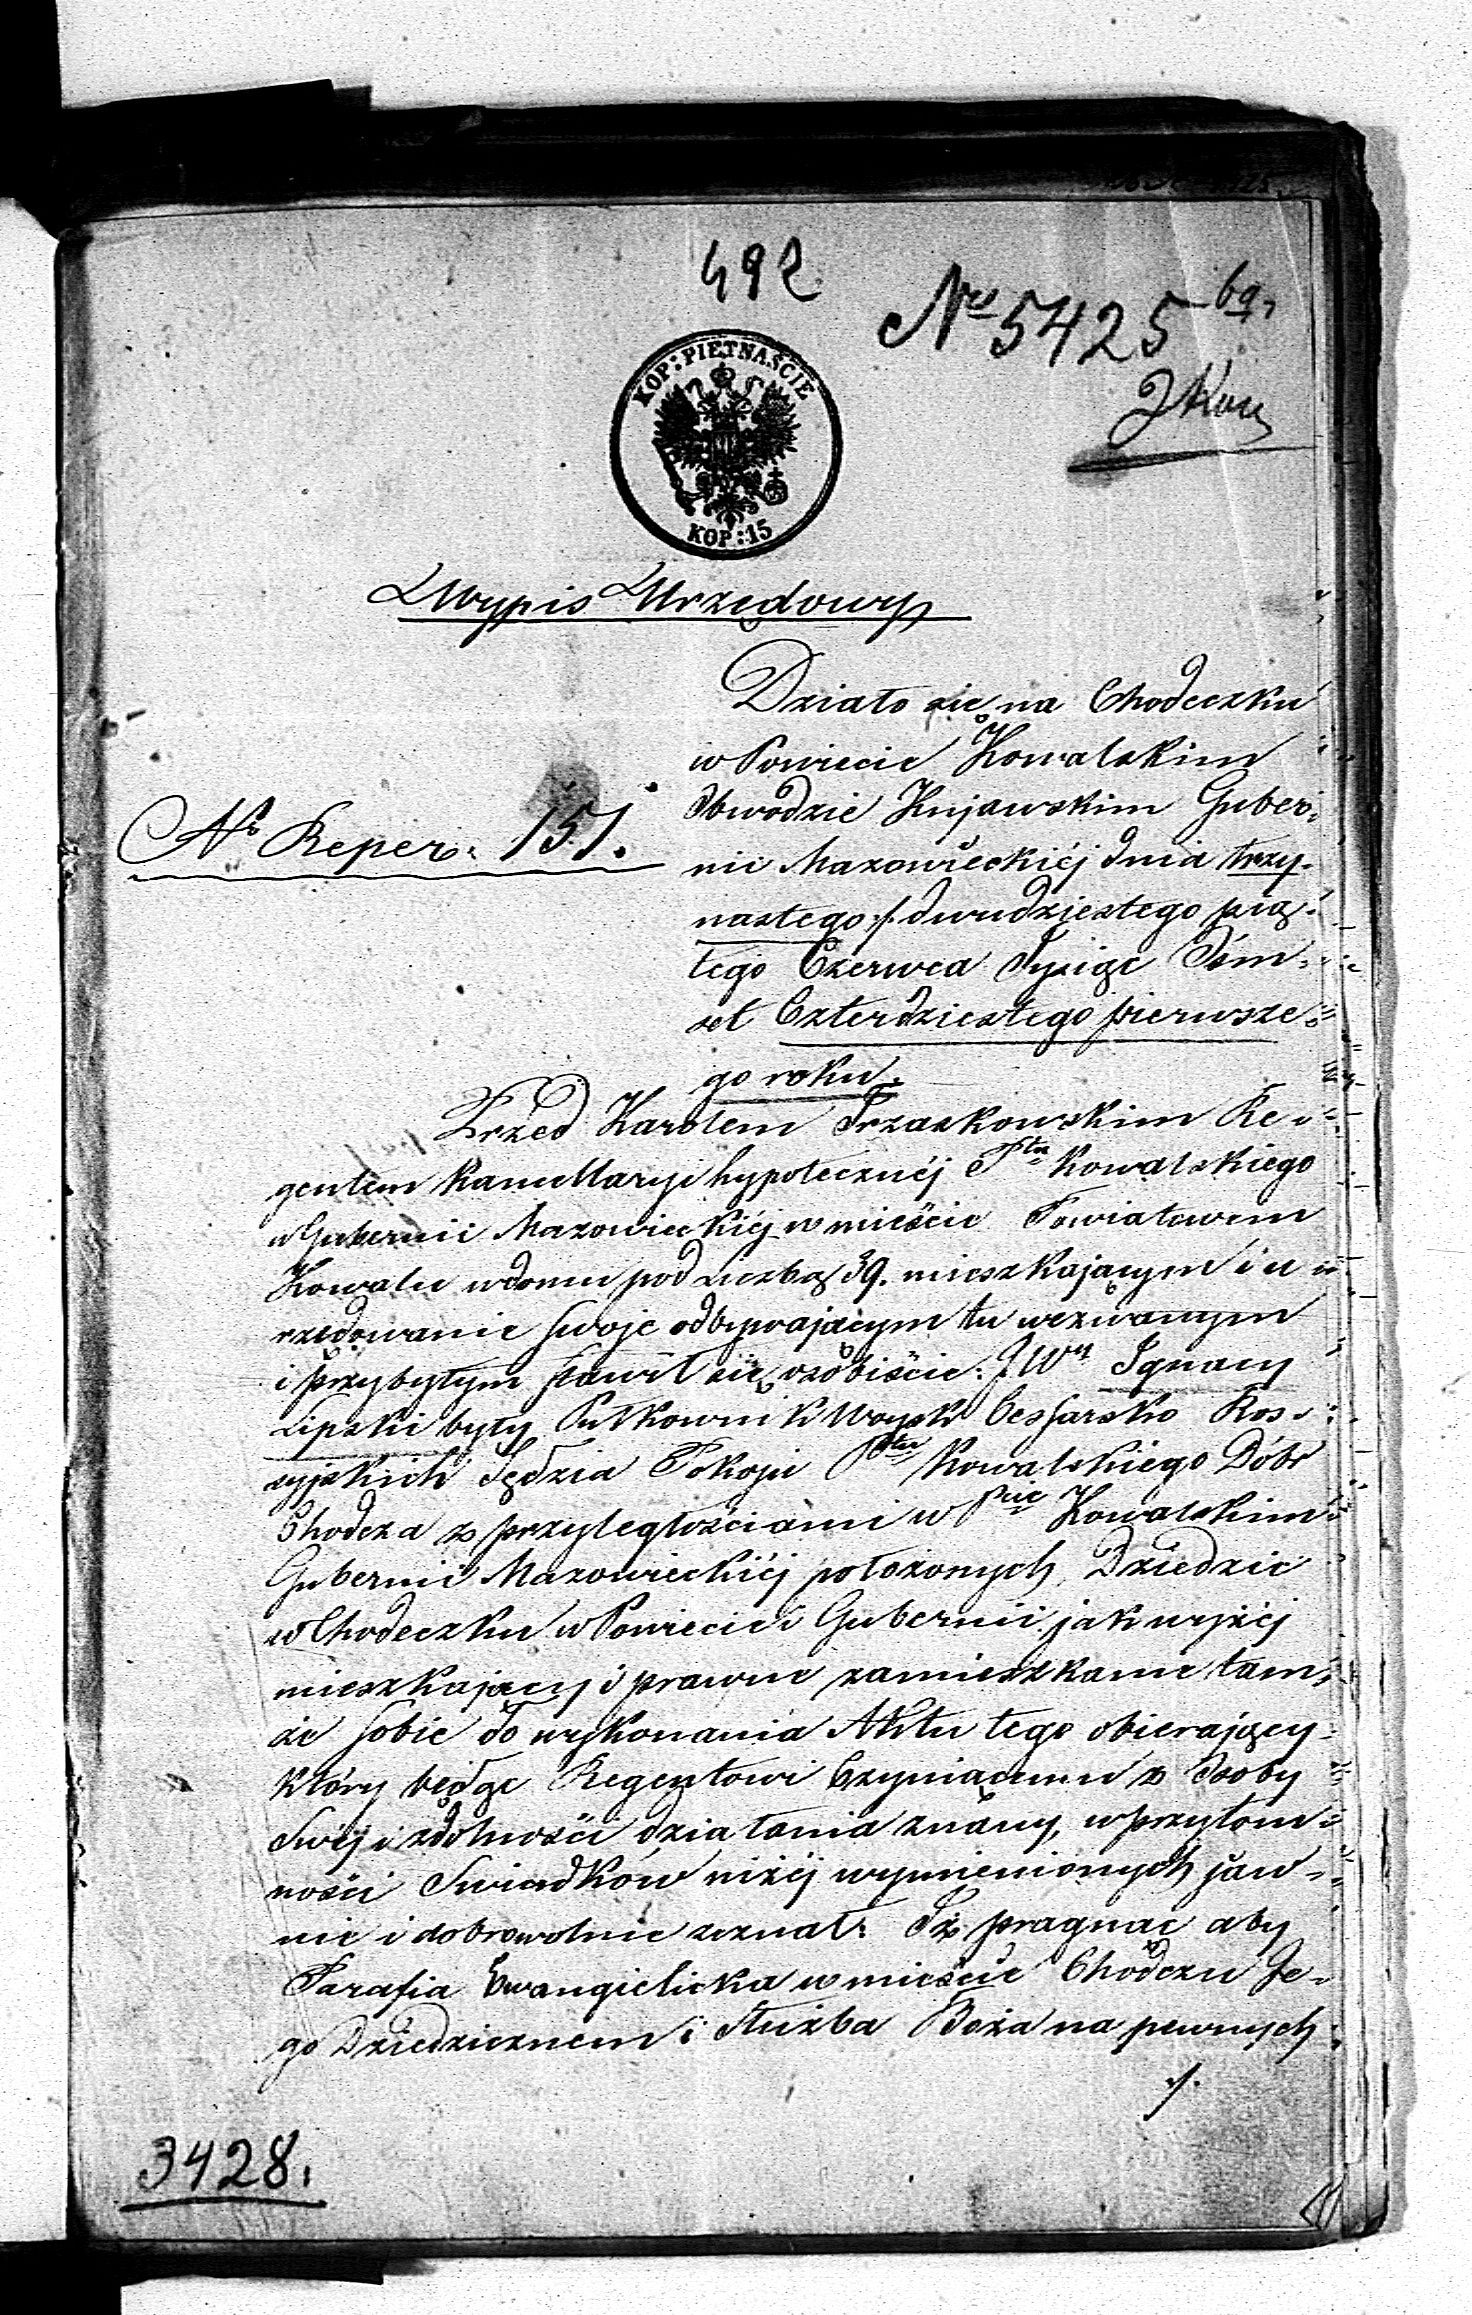 492
Nro 5425
KOP: PIETNAŚCIE
KOP: 15
Wypis Urzędowy
Działo się na Chodeczku
w Powiecie Kowalskim
Obwodzie Kujawskim Guber-
nii Mazowieckiéj dnia trzy-
nastego /. dwudziestego pią-
tego Czerwca Tysiąc Óśm-
set Czterdziestego pierwsze-
go roku.
No Reper. 151.
Przed Karolem Trzaskowskim Re-
gentem Kancellaryi hypotecznéj Ptu Kowalskiego
w Gubernii Mazowieckiéj w mieście Powiatowem
Kowalu w domu pod Liczbą 39. mieszkającym i u-
rzędowanie swoje odbywającym tu wezwanym
i przybytym stawił się osobiście. JWny Ignacy
Lipski były Pułkownik Woysk Cessarsko Ros-
syjskich Sędzia Pokoju Ptu Kowalskiego Dóbr
Chodcza z przyległościami w Pcie Kowalskim
Gubernii Mazowieckiéj położonych, Dziedzic
w Chodeczku w Powiecie i Gubernii jak wyżéj
mieszkający i prawne zamieszkanie tam-
że sobie do wykonania Aktu tego obierający
który będąc Regentowi Czyniącemu z Osoby
Swéj i zdolności działania znany, w przytom-
ności Swiadków niżéj wymienionych jaw-
nie i dobrowolnie zeznał. Iż pragnąc aby
Parafia Ewangielicka w mieście Chodczu Je-
go Dziedzicznem i Służba Boża na pewnych
./.
3428.